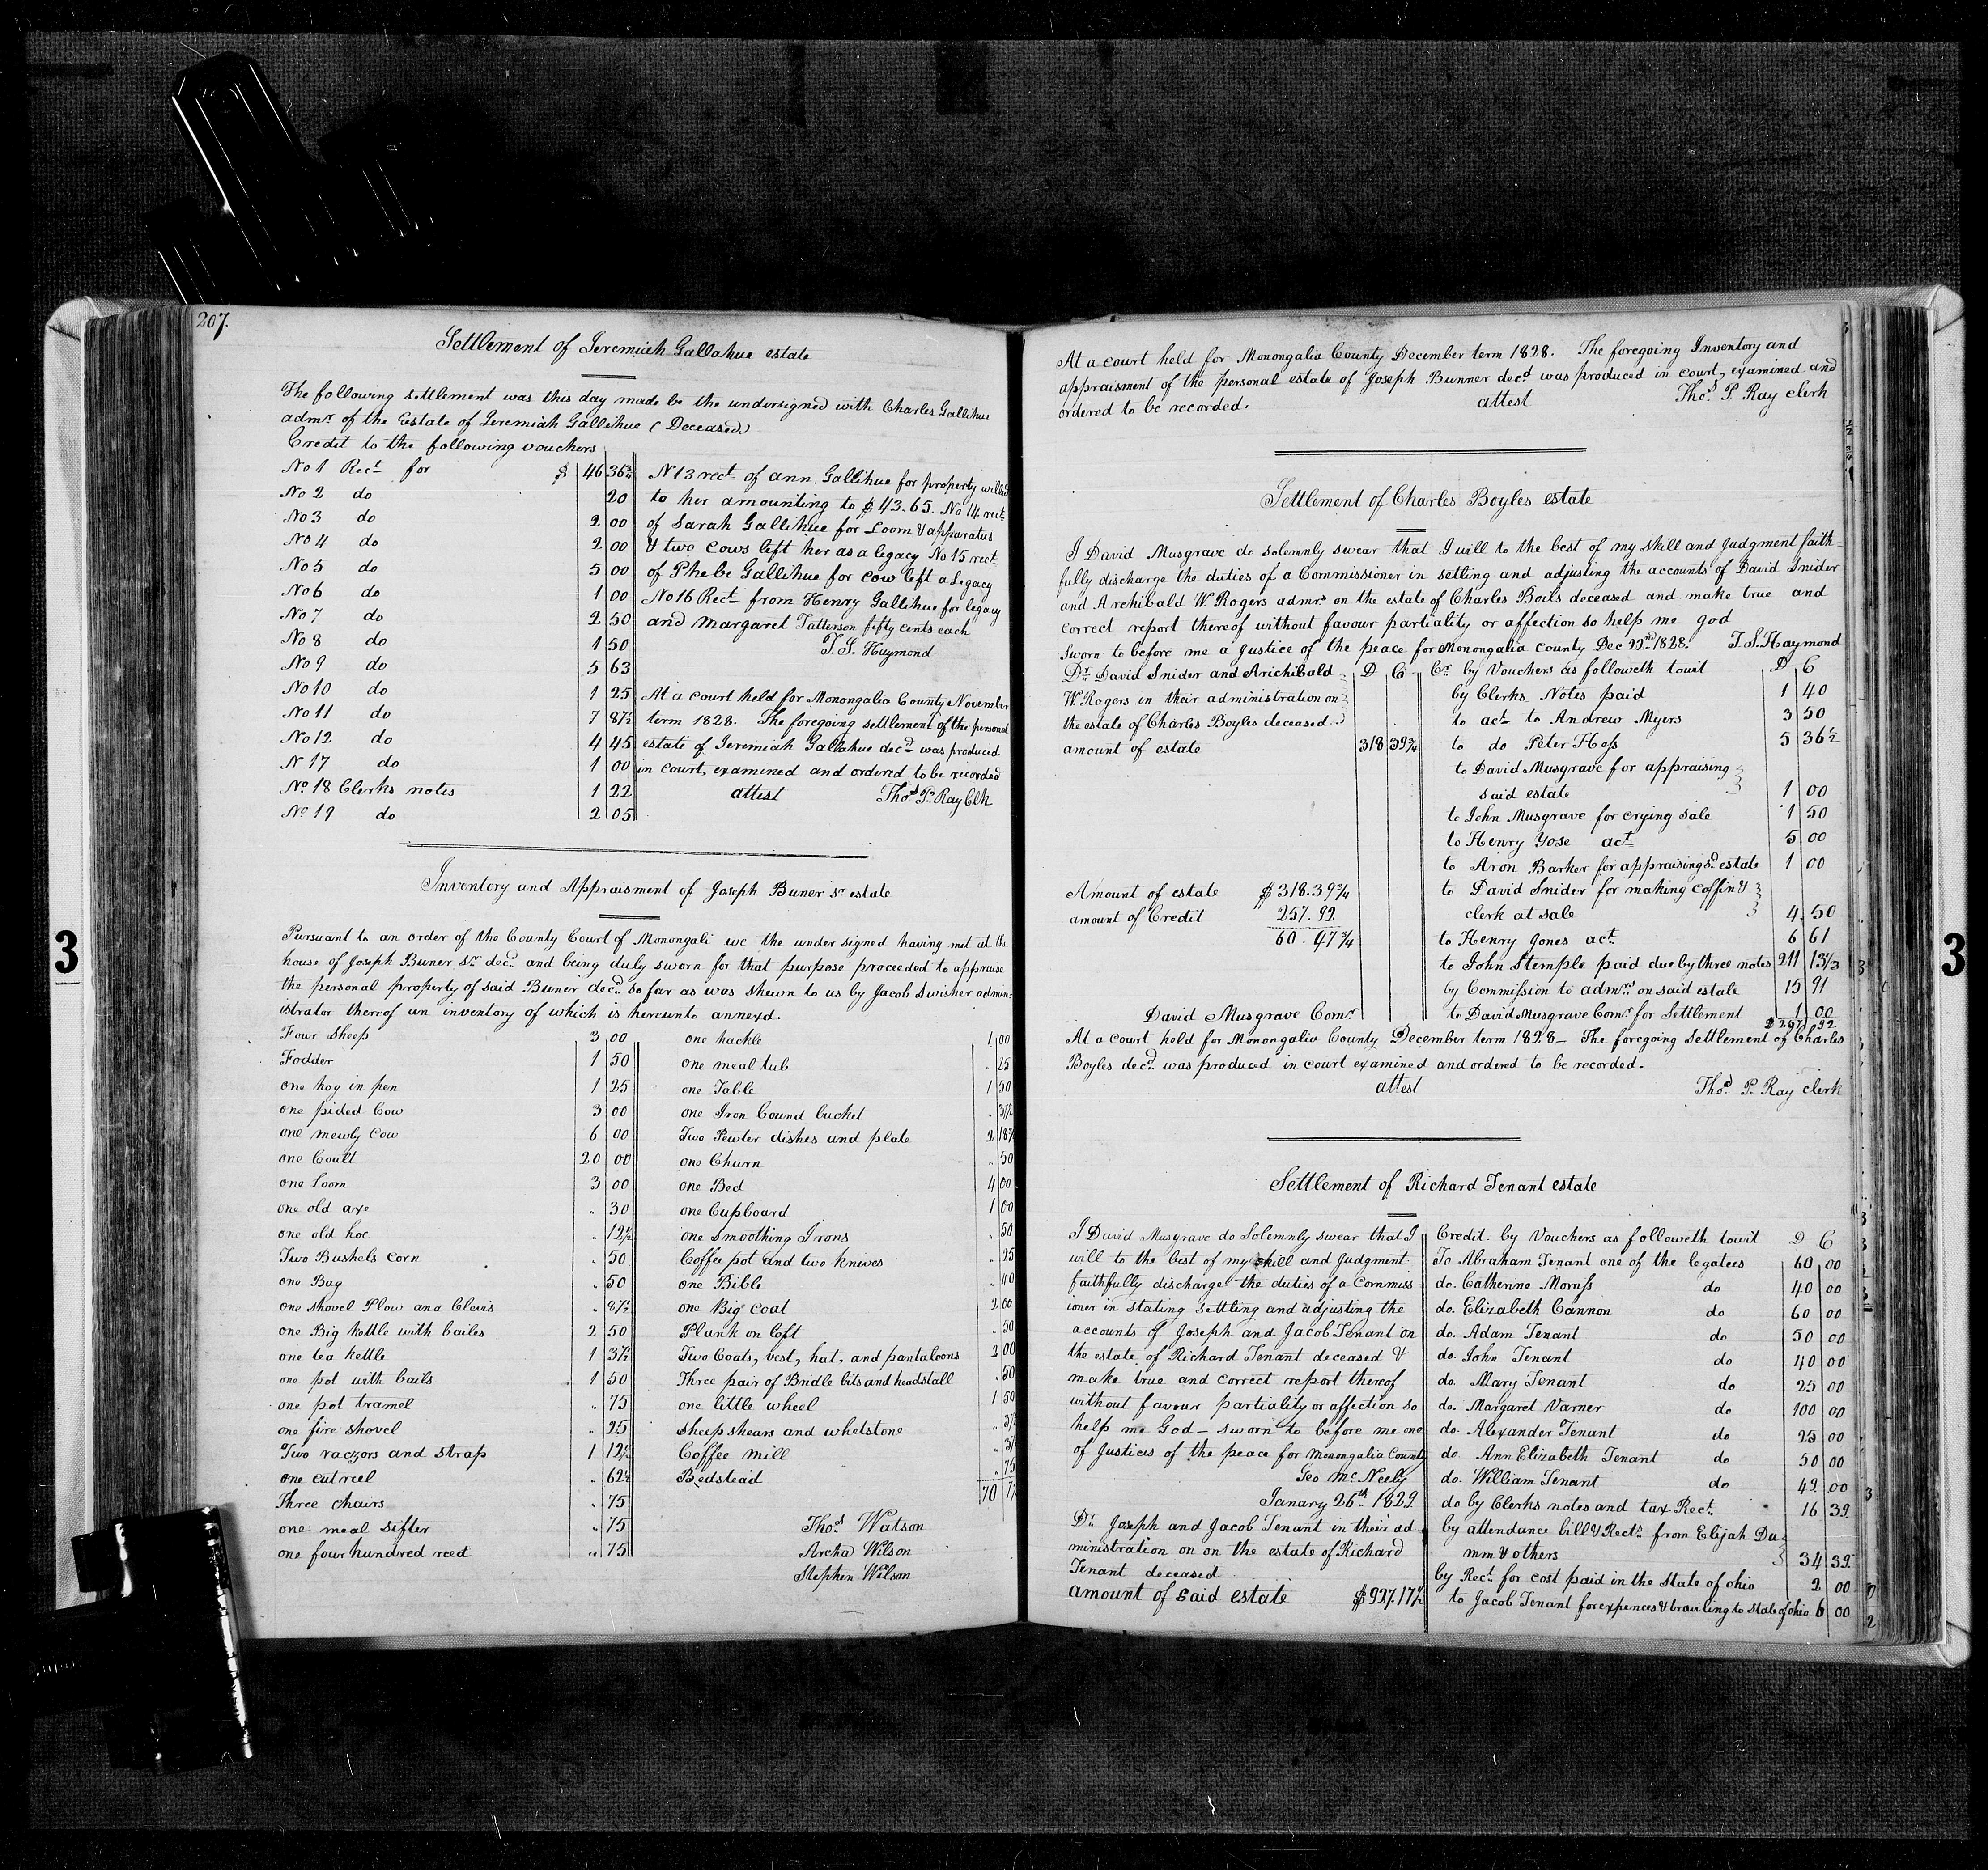 207.
Settlement of Jeremiah Gallahue estate
The following settlement was this day made be the undersigned with Charles Gallihue
admr. of the Estate of Jeremiah Gallihue (Deceased.)
Credit to the following vouchers
No 1 Rect for $ 46 36¾
No 2 do 20
No 3 do 2 00
No 4 do 2 00
No 5 do 5 00
No 6 do 1 00
No 7 do 2 50
No 8 do 1 50
No 9 do 5 63
No 10 do 1 25
No 11 do 7 87½
No 12 do 4 45
N 17 do 1 00
No 18 Clerks notes 1 22
No 19 do 2 05
N 13 rect. of ann Gallihue for property willed
to her amounting to $43.65. No 14 rect
of Sarah Gallihue for Loom & apparatus
& two cows left her as a legacy No 15 rect
of Phebe Gallihue for cow left a Legacy
No 16 Rect from Henry Gallihue for legacy
and Margaret Patterson fifty cents each
T. S. Haymond
At a court held for Monongalia County November
term 1828. The foregoing settlement of the personal
estate of Jeremiah Gallahue decd was produced
in court, examined and ordered to be recorded
attest Thos P. Ray Clk
Inventory and Appraisment of Joseph Buner Sr estate
Pursuant to an order of the County Court of Monongali we the under signed having met at the
house of Joseph Buner Sr decd. and being duly sworn for that purpose proceeded to appraise
the personal property of said Buner decd. so far as was shewn to us by Jacob Swisher admin-
istrator thereof an inventory of which is hereunto annexd.
Four Sheep 3 00
Fodder 1 50
one hog in pen 1 25
one pided Cow 3 00
one mewly Cow 6 00
one Coult 20 00
one Loom 3 00
one old axe " 30
one old hoe " 12½
Two Bushels corn " 50
one Bag " 50
one shovel Plow and Clevis " 87½
one Big kettle with bailes 2 50
one tea kettle 1 37½
one pot with bails 1 50
one pot tramel " 75
one fire shovel " 25
Two raczors and strap 1 12½
one cutreel " 62½
Three chairs " 75
one meal sifter " 75
one four hundred reed " 75
one hackle 1 00
one meal tub " 25
one Table 1 50
one Iron bound bucket " 37½
Two Pewter dishes and plate 2 18¾
one Churn " 50
one Bed 4 00
one Cupboard 1 00
one smoothing Irons " 50
Coffee pot and two knives " 25
one Bible " 40
one Big coat 2 00
Plank on loft " 50
Two Coats, vest, hat, and pantaloons 2 00
Three pair of Bridle bits and headstall " 50
one little wheel 1 50
sheep shears and whetstone " 37
Coffee mill " 37
Bedstead " 75
70 17
Thos Watson
Archd Wilson
Stephen Wilson
At a court held for Monongalia County December term 1828. The foregoing Inventory and
appraisment of the personal estate of Joseph Bunner decd was produced in court, examined and
ordered to be recorded. attest Thos P. Ray clerk
Settlement of Charles Boyles estate
I David Musgrave do solemnly swear that I will to the best of my skill and Judgment faith-
fully discharge the duties of a Commissioner in setling and adjusting the accounts of David Snider
and Archibald W. Rogers admrs on the estate of Charles Boils deceased and make true and
correct report thereof without favour partiality or affection so help me god
Sworn to before me a Justice of the peace for Monongalia county Dec 22nd 1828. T. S. Haymond
Dr David Snider and Arichibald D C
W. Rogers in their administration on
the estate of Charles Boyles deceased
amount of estate 318 39¾
Amount of estate $318.39¾
amount of Credit 257.92
60.47¾
David Musgrave Comr
Cr by Vouchers as followeth towit D C
by Clerks Notes paid 1 40
to act to Andrew Myers 3 50
to do Peter Hess 5 36½
to David Musgrave for appraising
said estate 1 00
to John Musgrave for crying sale 1 50
to Henry Yose act 5 00
to Aron Barker for appraising sd estate 1 00
to David Snider for making coffin &
clerk at sale 4.50
to Henry Jones act. 6 61
to John Stemple paid due by three notes 211 13⅓
by Commission to admrs on said estate 15 91
to David Musgrave Comr for Settlement 1 00
$257 92
At a court held for Monongalia County December term 1828 – The foregoing Settlement of Charles
Boyles decd. was produced in court examined and ordered to be recorded.
attest Thos P. Ray clerk
Settlement of Richard Tenant estate
I David Musgrave do Solemnly swear that I
will to the best of my skill and Judgment
faithfully discharge the duties of a Commiss
ioner in stating settling and adjusting the
accounts of Joseph and Jacob Tenant on
the estate of Richard Tenant deceased &
make true and correct report thereof
without favour partiality or affection so
help me God – sworn to before me one
of Justices of the peace for Monongalia County
Geo McNeely
Janary 26th 1829
Dr Joseph and Jacob Tenant in their ad
ministration on on the estate of Richard
Tenant deceased
amount of said estate $927.17½
Credit by Vouchers as followeth towit D C
To Abraham Tenant one of the legatees 60 00
do. Catherine Moruss do 40 00
do. Elizabeth Cannon do 60 00
do. Adam Tenant do 50 00
do. John Tenant do 40 00
do. Mary Tenant do 25 00
do. Margaret Varner do 100 00
do. Alexander Tenant do 25 00
do. Ann Elizabeth Tenant do 50 00
do. William Tenant do 42 00
do by Clerks notes and tax Rect. 16 39
by attendance bill & Rects from Elijah Da
mm & others 34 39
by Rect. for cost paid in the State of ohio 2 00
to Jacob Tenant for expences & travling to State of ohio 6 00
3
3